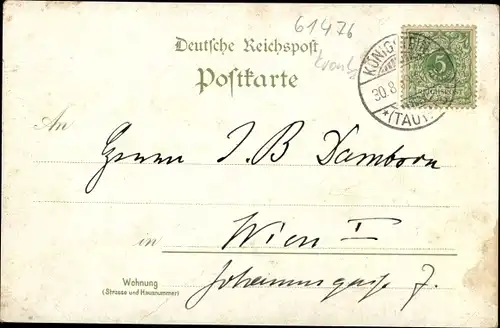 61476
Deutsche Reichspost
Postkarte
KÖNIGSTEIN
30.8
*(TAU
5
REICHSPOST
An
Herrn J. B Dambora
in Wien I
Wohnung
(Strasse und Hausnummer)
Johannesgasse 7.